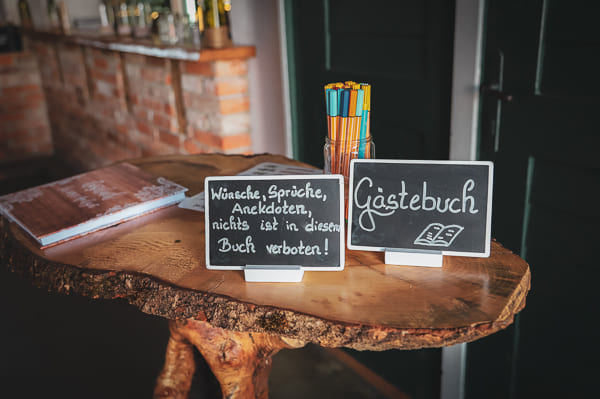 Wünsche, Sprüche,
Anekdoten,
nichts ist in diesem
Buch verboten!
Gästebuch